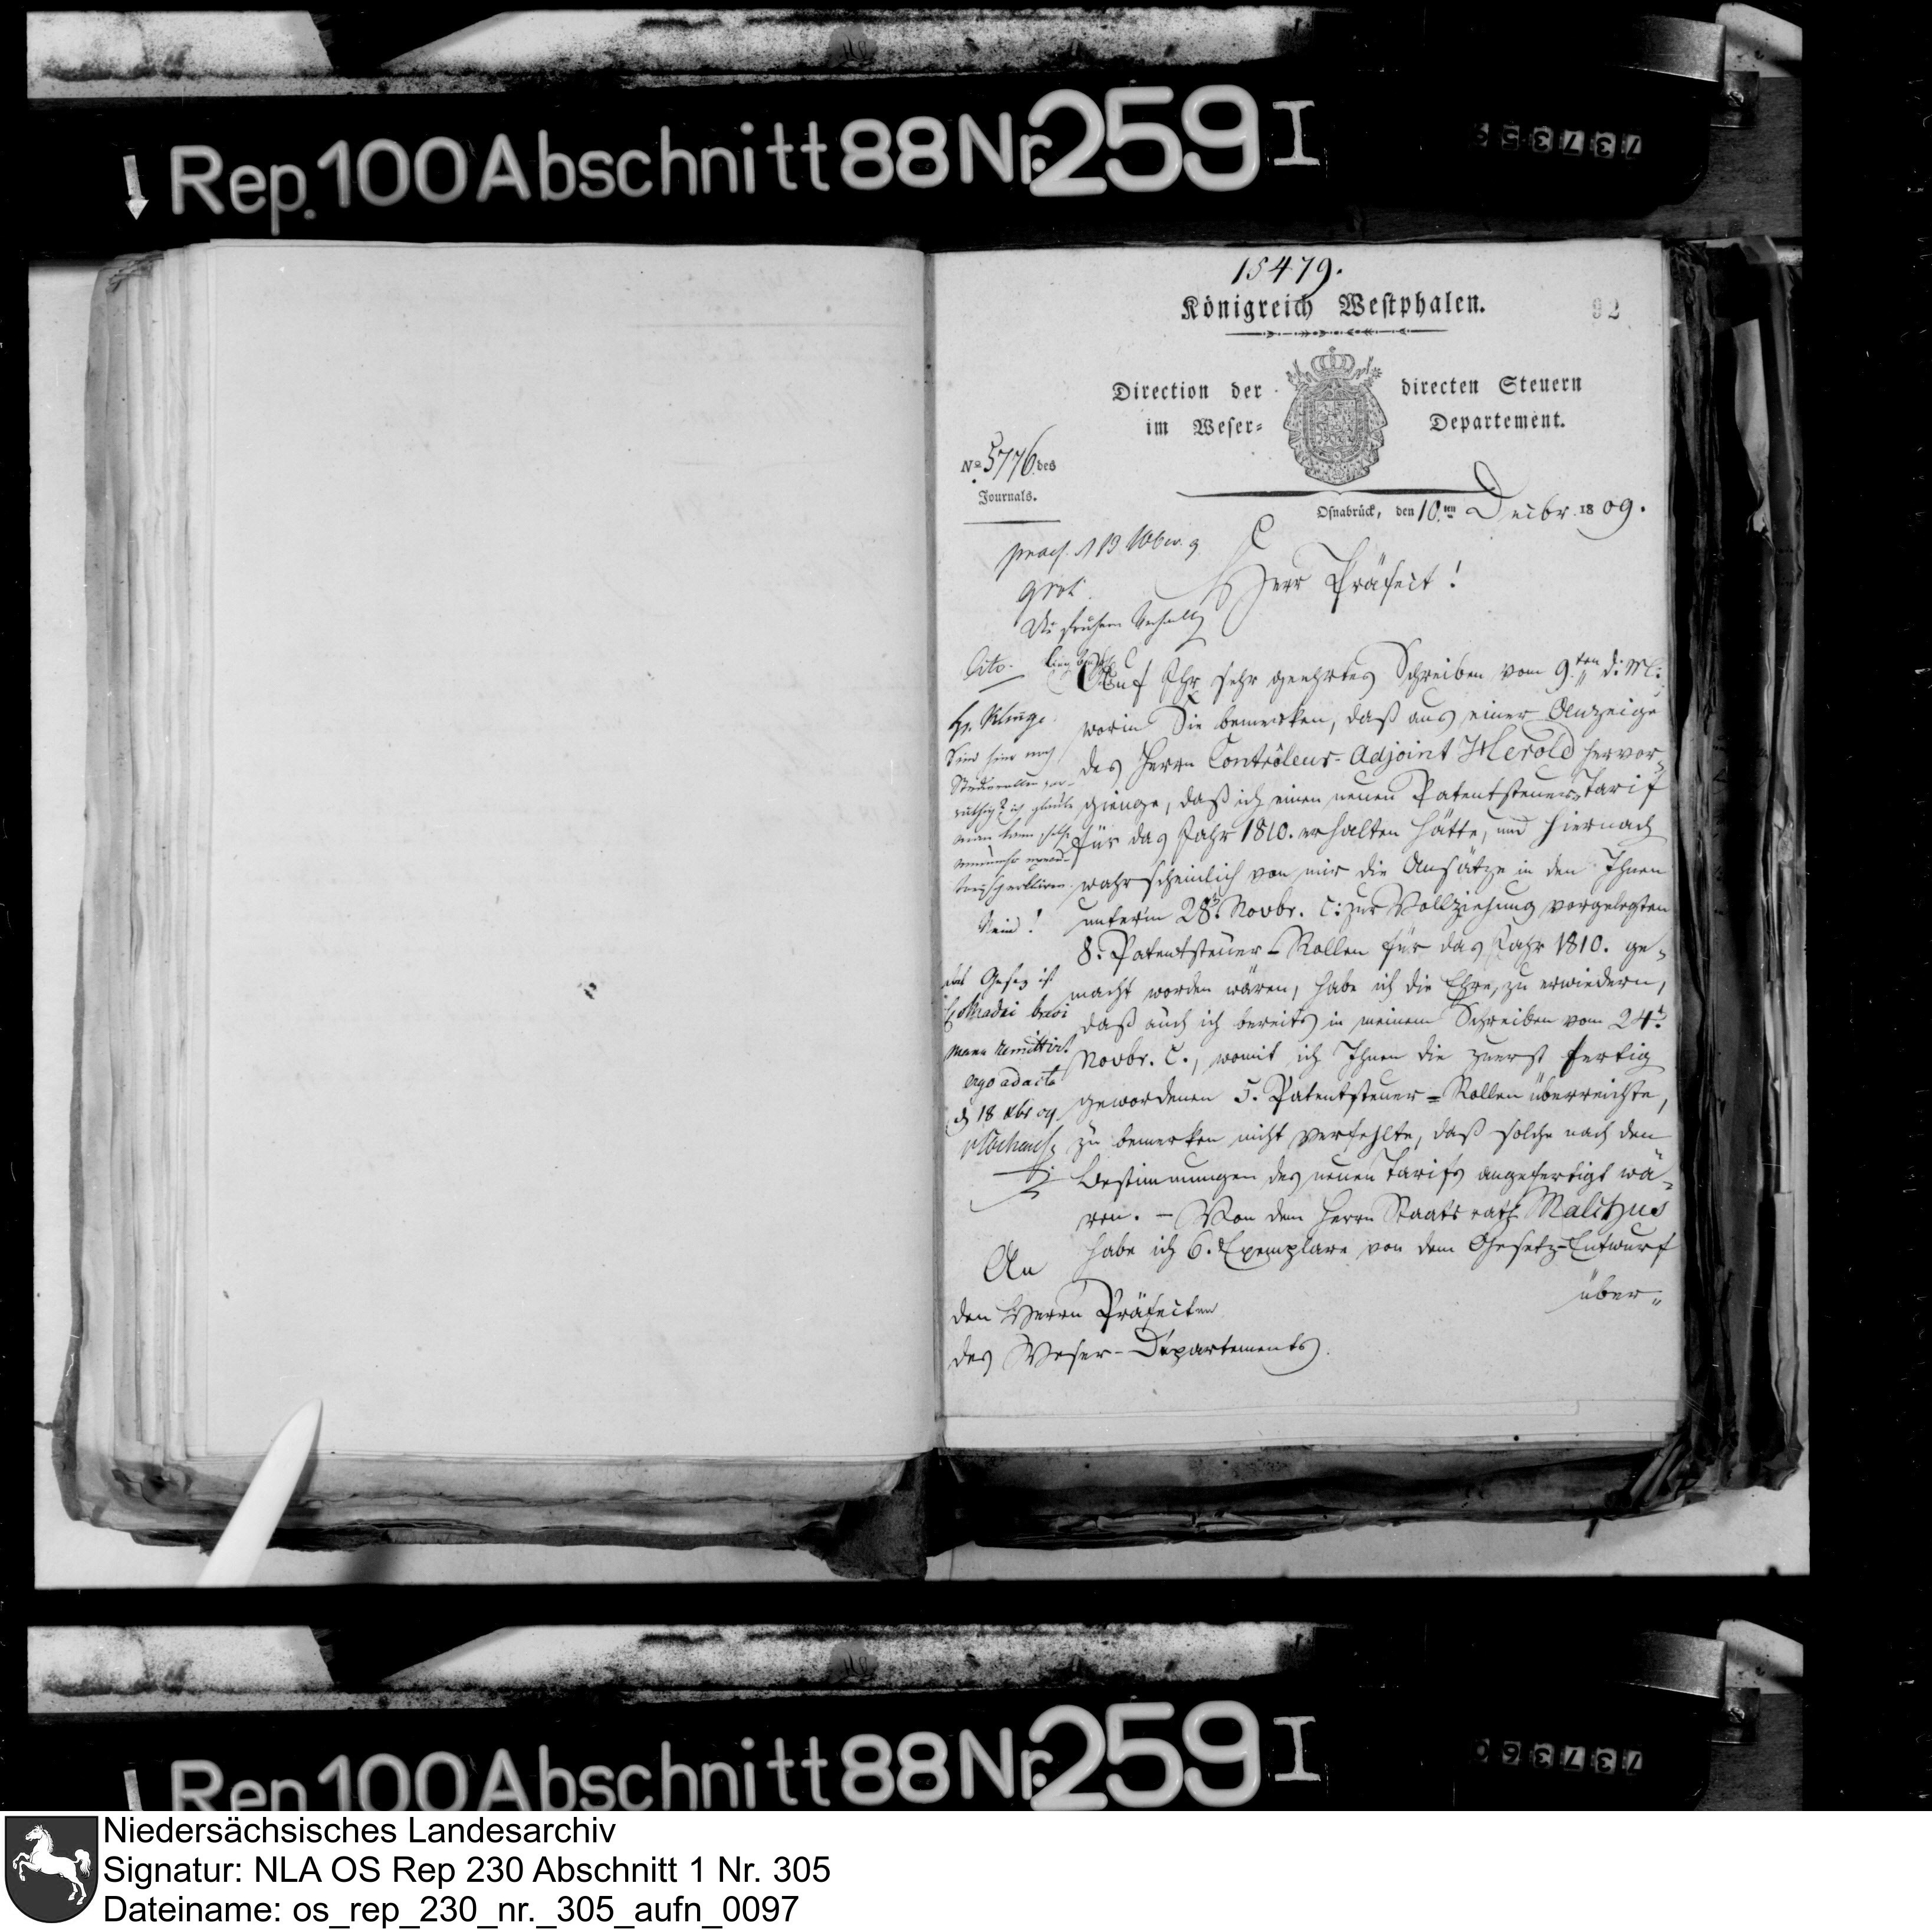 Rep. 100 Abschnitt 88 Nr. 259 I
15479.
Königreich Westphalen.
92
Direction der directen Steuern
im Weser- Departement.
No 5776 des
Journals.
Osnabrück, den 10ten Decbr. 1809.
praes. d 13 Xber. 9
Herr Präfect!
Die frühern Verhdlg
Cito.
Auf Ihr sehr geehrtes Schreiben vom 9.ten d: M:
worin Sie bemerken, daß aus einer Anzeige
des Herrn Contrôleur-Adjoint Herold hervor-
gienge, daß ich einen neuen Patentsteuer-Tarif
für das Jahr 1810. erhalten hätte, und hiernach
wahrscheinlich von mir die Ansätze in den Ihnen
unterm 28t. Novbr. c: zur Vollziehung vorgelegten
8. Patentsteuer-Rollen für das Jahr 1810. ge-
macht worden wären, habe ich die Ehre, zu erwiedern,
daß auch ich bereits in meinem Schreiben vom 24t.
Novbr. c., womit ich Ihnen die zuerst fertig
gewordenen 5. Patentsteuer-Rollen überreichte,
zu bemerken nicht verfehlte, daß solche nach den
Bestimmungen des neuen Tarifs angefertigt wä-
ren. – Von dem Herrn Staatsrath Malchus
habe ich 6. Exemplare von dem Gesetz-Entwurf
über-
Nein!
das Gesez ist
brevi
manu remittirt
ergo ad acta
d 18 Xbr 09
An
den Herrn Präfecten
des Weser-Departements.
Rep 100 Abschnitt 88 Nr. 259 I
Niedersächsisches Landesarchiv
Signatur: NLA OS Rep 230 Abschnitt 1 Nr. 305
Dateiname: os_rep_230_nr._305_aufn_0097